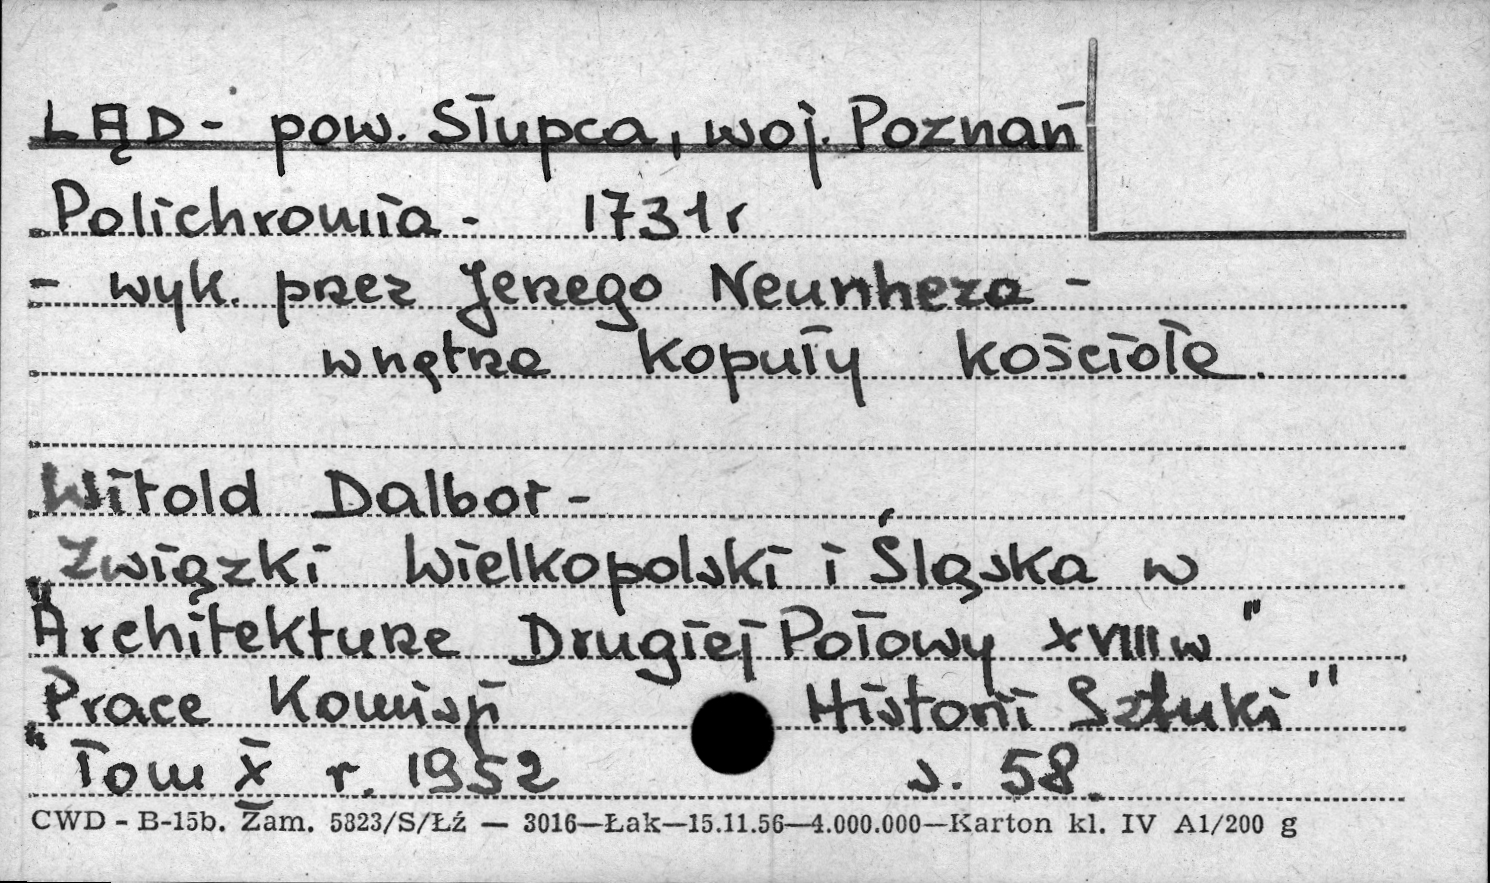 LĄD - pow. Słupca, woj. Poznań
Polichromia - 1731 r
- wyk. przez Jerzego Neunherza -
wnętrze kopuły kościoła.
Witold Dalbor -
"Związki Wielkopolski i Śląska w
Architekturze Drugiej Połowy XVIII w"
"Prace Komisji Historii Sztuki"
Tom X r. 1952 s. 58.
CWD - B-15b. Zam. 5823/S/Łź — 3016—Łak—15.11.56—4.000.000—Karton kl. IV A1/200 g